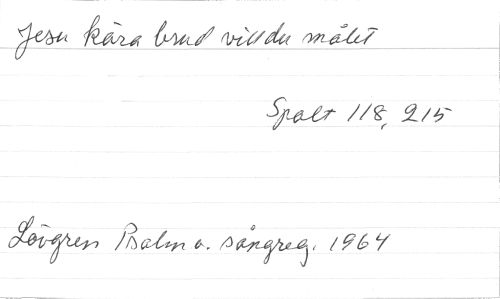 Jesu kära brud vill du målet
Spalt 118, 215
Lövgren Psalm o. sångreg. 1964